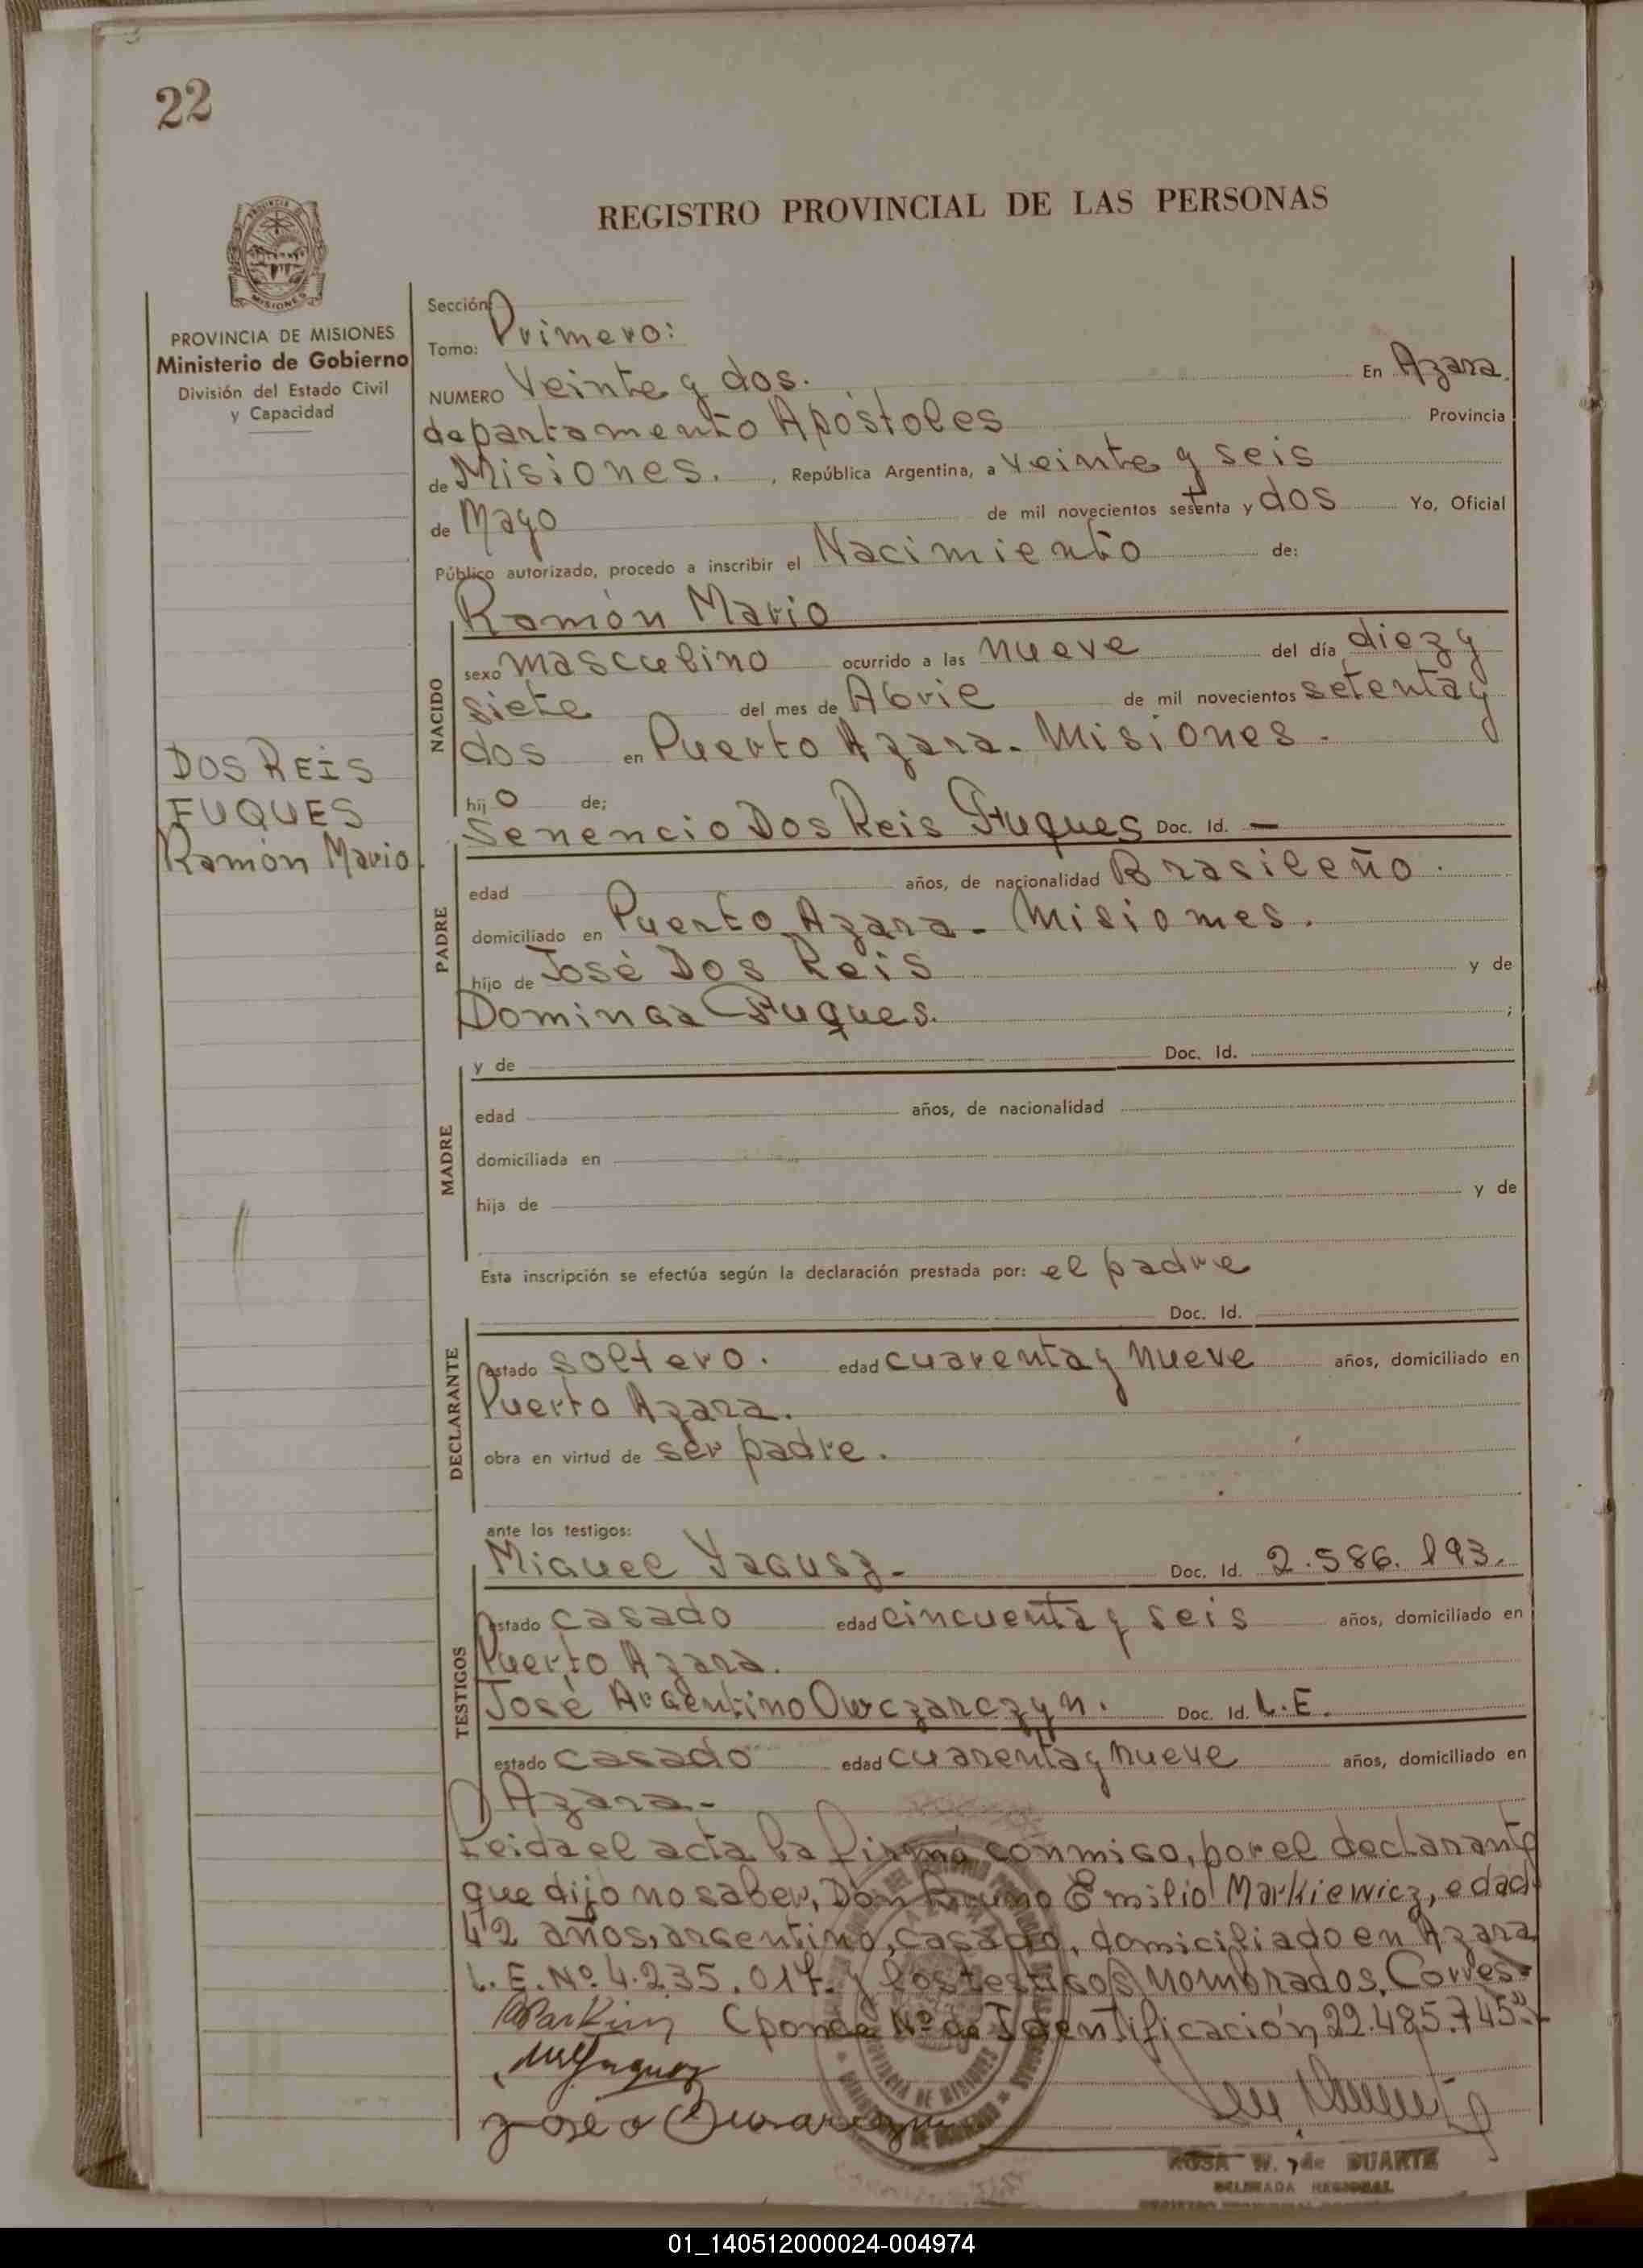 22
REGISTRO PROVINCIAL DE LAS PERSONAS
PROVINCIA
MISIONES
PROVINCIA DE MISIONES
Ministerio de Gobierno
División del Estado Civil
y Capacidad
Sección:
Tomo: Primero:
NUMERO Veinte y dos. En Azara.
departamento Apóstoles Provincia
de Misiones. , República Argentina, a veinte y seis
de Mayo de mil novecientos setenta y dos Yo, Oficial
Público autorizado, procedo a inscribir el Nacimiento de:
Ramón Mario
NACIDO
sexo masculino ocurrido a las nueve del día diez y
siete del mes de Abril de mil novecientos setenta y
dos en Puerto Azara - Misiones.
DOS REIS
FUQUES
Ramón Mario.
hij o de;
Senencio Dos Reis Fuques Doc. Id. —
PADRE
edad años, de nacionalidad Brasileño.
domiciliado en Puerto Azara - Misiones.
hijo de José Dos Reis y de
Dominga Fuques. ;
MADRE
y de Doc. Id.
edad años, de nacionalidad
domiciliada en
hija de y de
Esta inscripción se efectúa según la declaración prestada por: el padre
Doc. Id.
DECLARANTE
estado soltero. edad cuarenta y nueve años, domiciliado en
Puerto Azara.
obra en virtud de ser padre.
ante los testigos:
TESTIGOS
Miguel Yagusz - Doc. Id. 2.586.193.
estado casado edad cincuenta y seis años, domiciliado en
Puerto Azara.
José Argentino Owczarczyn. Doc. Id. L.E.
estado casado edad cuarenta y nueve años, domiciliado en
Azara -
Leida el acta la firma conmigo, por el declarante
que dijo no saber, Don Bruno Emilio Markiewicz, edad
42 años, argentino, casado, domiciliado en Azara
L.E. Nº 4.235.017. y los testigos nombrados. Corres-
(ponde Nº de Identificación 22.485.745"-
ROSA W. de DUARTE
DELEGADA REGIONAL
01_140512000024-004974